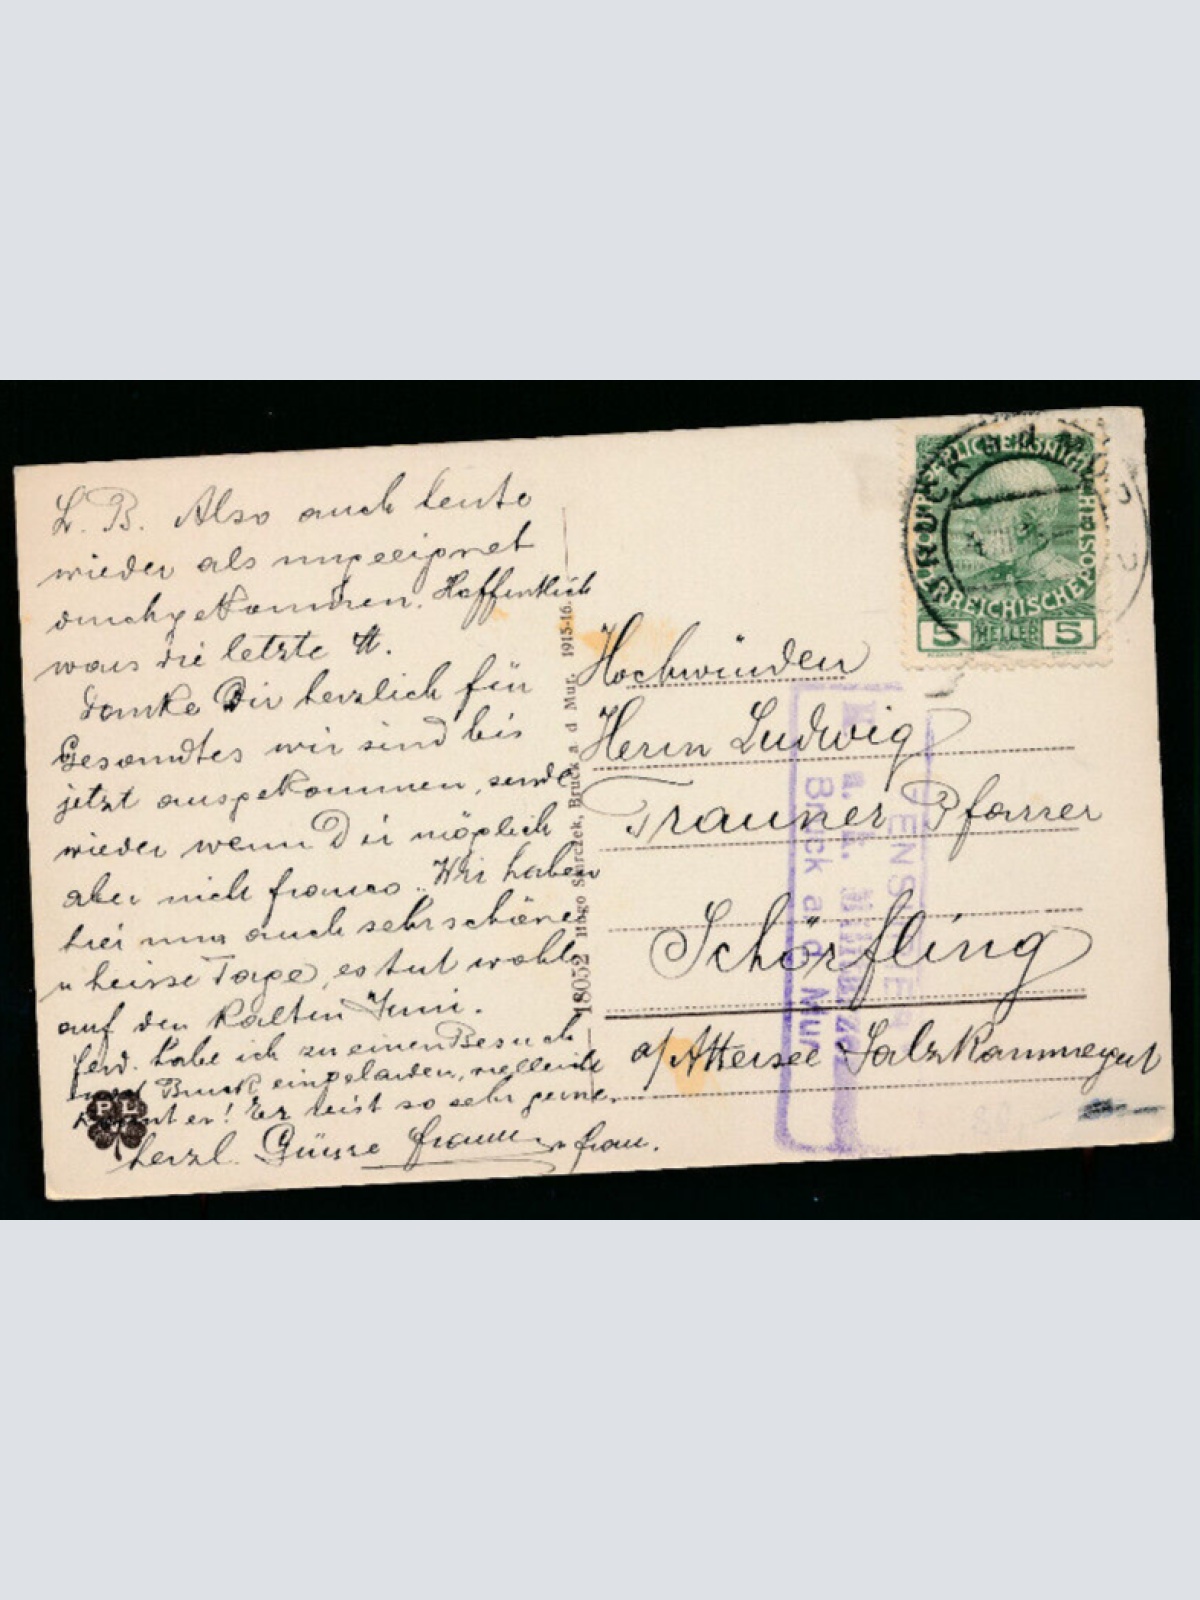 L. B. Also auch heute
wieder als ungeeignet
durchgekommen. Hoffentlich
was die letzte M.
Danke Dir herzlich für
Gesandtes wir sind bis
jetzt ausgekommen, sende
wieder wenn Dir möglich
aber nicht franco. Wir haben
hier nun auch sehr schöne
u heisse Tage, es tut wohl
auf den kalten Juni.
Ferd. habe ich zu einen Besuch
nach Bruck eingeladen, vielleicht
kommt er! Er reist so sehr gerne.
herzl. Grüsse u Frau.
PL
18052 Hugo Bruck a d Mur. 1915-16.
BRUCK a.d. MUR
KAISERLICHE KÖNIGLICHE ÖSTERREICHISCHE POST
5 HELLER 5
Hochwürden
Herrn Ludwig
Trauner Pfarrer
Schörfling
a/Attersee Salzkammergut
Bruck a/d. Mur